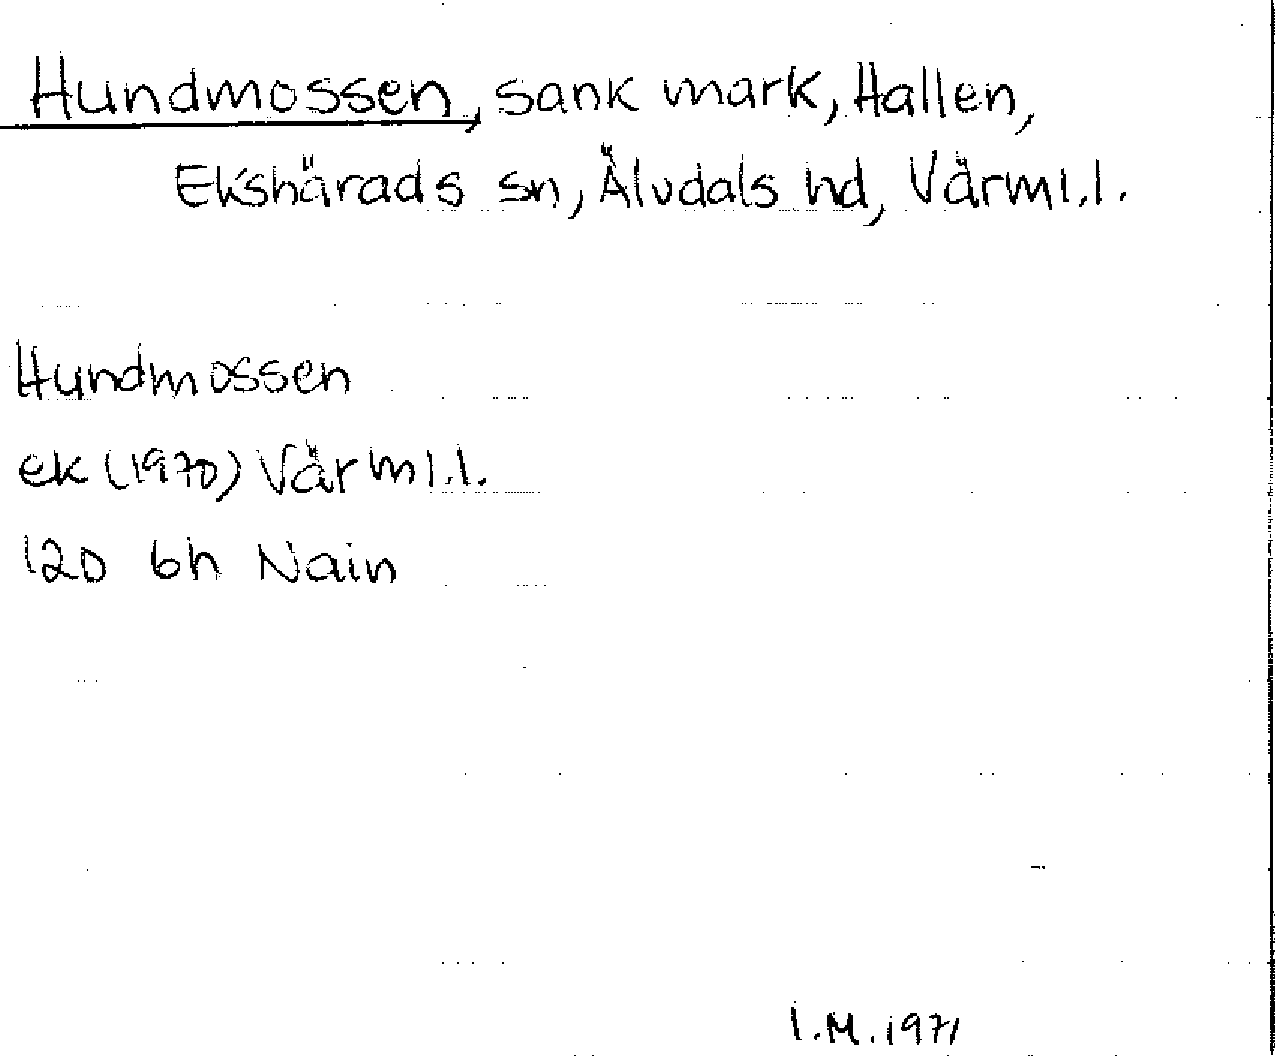 Hundmossen, sank mark, Hallen,
Ekshärads sn, Älvdals hd, Värml.l.
Hundmossen
ek (1970) Värml.l.
120 6h Nain
I.M. 1971